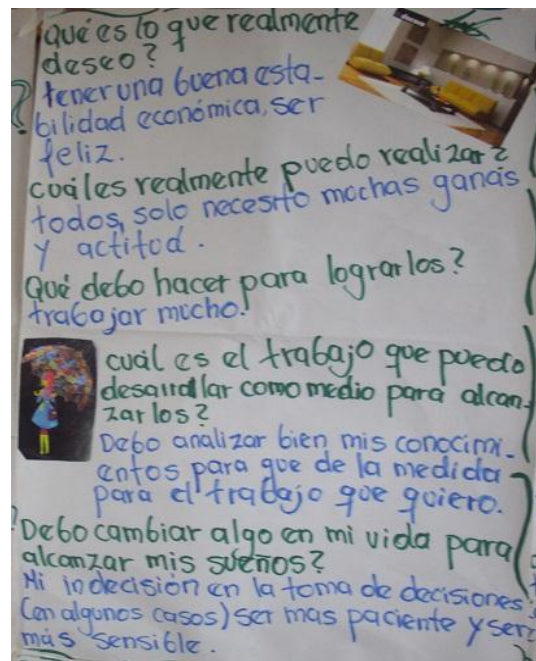 Qué es lo que realmente
deseo?
tener una buena esta-
bilidad económica, ser
feliz.
cuáles realmente puedo realizar?
todos, solo necesito muchas ganas
y actitud.
Qué debo hacer para lograrlos?
trabajar mucho.
cuál es el trabajo que puedo
desarrollar como medio para alcan-
zarlos?
Debo analizar bien mis conocimi-
entos para que de la medida
para el trabajo que quiero.
Debo cambiar algo en mi vida para
alcanzar mis sueños?
Mi indecisión en la toma de decisiones
(en algunos casos) ser mas paciente y ser
más sensible.